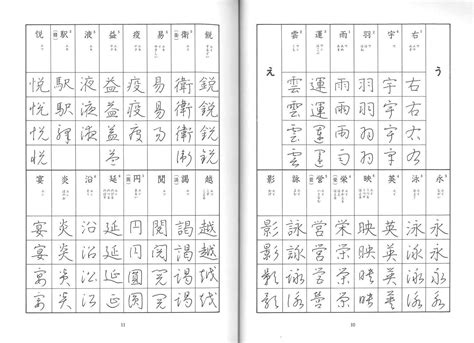 う
右 宇 羽 雨 運 雲
右 宇 羽 雨 運 雲
右 宇 羽 雨 運 雲
右 宇 羽 雨 運 雲
右 宇 羽 雨 運 雲
え
永 泳 英 映 栄 営 詠 影
永 泳 英 映 栄 営 詠 影
永 泳 英 映 栄 営 詠 影
永 泳 英 映 栄 営 詠 影
永 泳 英 映 栄 営 詠 影
10
鋭 衛 易 疫 益 液 駅 悦
鋭 衛 易 疫 益 液 駅 悦
鋭 衛 易 疫 益 液 駅 悦
鋭 衛 易 疫 益 液 駅 悦
鋭 衛 益 悦
越 謁 閲 円 延 沿 炎 宴
越 謁 閲 円 延 沿 炎 宴
越 謁 閲 円 延 沿 炎 宴
越 謁 閲 円 延 沿 炎 宴
越 謁 閲 円 延 沿 炎 宴
11